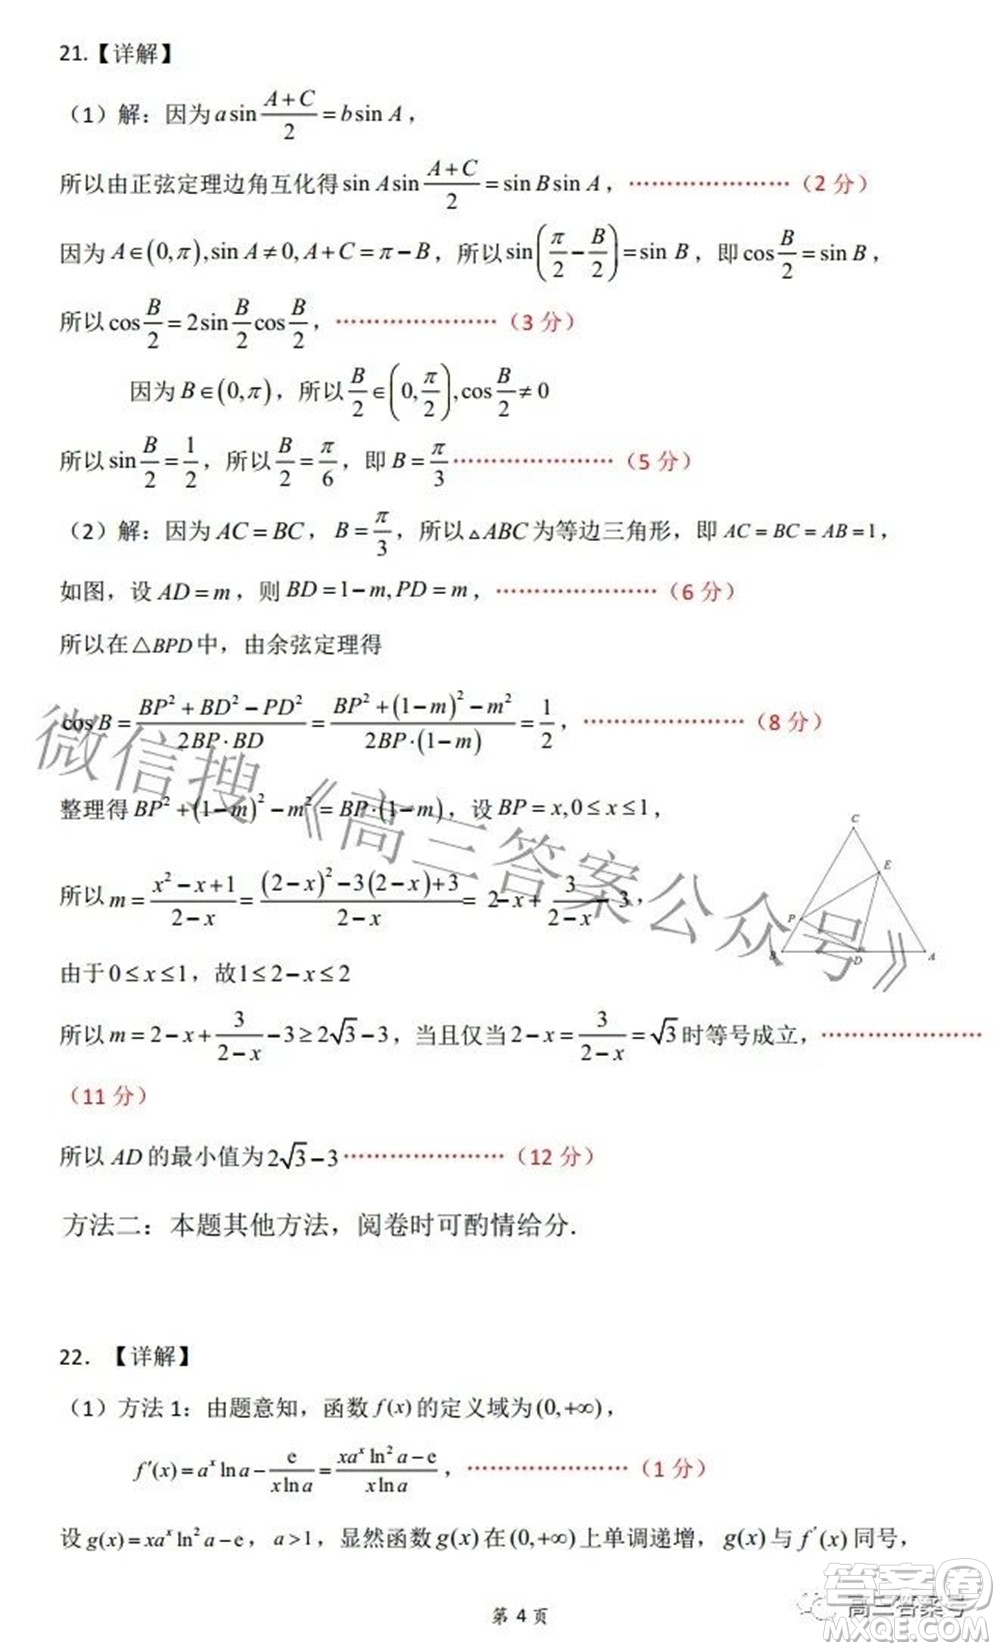 21.【详解】
（1）解：因为 a sin (A+C)/2 = b sin A，
所以由正弦定理边角互化得 sin A sin (A+C)/2 = sin B sin A，……………………（2 分）
因为 A∈(0,π), sin A≠0, A+C=π−B，所以 sin(π/2 − B/2) = sin B，即 cos B/2 = sin B，
所以 cos B/2 = 2sin B/2 cos B/2，……………………（3 分）
因为 B∈(0,π)，所以 B/2∈(0, π/2), cos B/2 ≠ 0
所以 sin B/2 = 1/2，所以 B/2 = π/6，即 B = π/3……………………（5 分）
（2）解：因为 AC = BC，B = π/3，所以 △ABC 为等边三角形，即 AC = BC = AB = 1，
如图，设 AD = m，则 BD = 1−m, PD = m，……………………（6 分）
所以在 △BPD 中，由余弦定理得
cos B = (BP²+BD²−PD²)/(2BP·BD) = (BP²+(1−m)²−m²)/(2BP·(1−m)) = 1/2，……………………（8 分）
整理得 BP²+(1−m)²−m² = BP·(1−m)，设 BP = x, 0≤x≤1，
所以 m = (x²−x+1)/(2−x) = ((2−x)²−3(2−x)+3)/(2−x) = 2−x+3/(2−x)−3，
由于 0≤x≤1，故 1≤2−x≤2
所以 m = 2−x+3/(2−x)−3 ≥ 2√3−3，当且仅当 2−x = 3/(2−x) = √3 时等号成立，……………………
（11 分）
所以 AD 的最小值为 2√3−3……………………（12 分）
方法二：本题其他方法，阅卷时可酌情给分.
C
E
P
B
D
A
22．【详解】
（1）方法 1：由题意知，函数 f(x) 的定义域为 (0,+∞)，
f′(x) = aˣ ln a − e/(x ln a) = (xaˣ ln² a − e)/(x ln a)，……………………（1 分）
设 g(x) = xaˣ ln² a − e，a>1，显然函数 g(x) 在 (0,+∞) 上单调递增，g(x) 与 f′(x) 同号，
第 4 页
微信搜《高三答案公众号》
高三答案号
答案圈
MXQE.COM